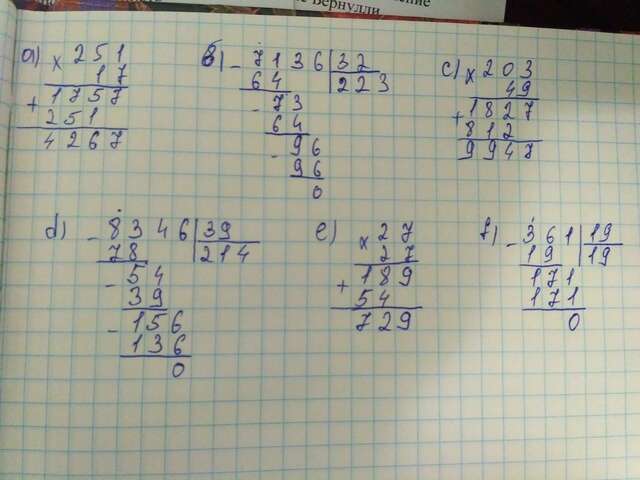 ение
не Бернулли
a) × 251
17
+ 1757
251
4267
b) - 7136 | 32
64 | 223
- 73
64
- 96
96
0
c) × 203
49
+ 1827
812
9947
d) - 8346 | 39
78 | 214
- 54
39
- 156
136
0
e) × 27
27
+ 189
54
729
f) - 361 | 19
19 | 19
171
171
0